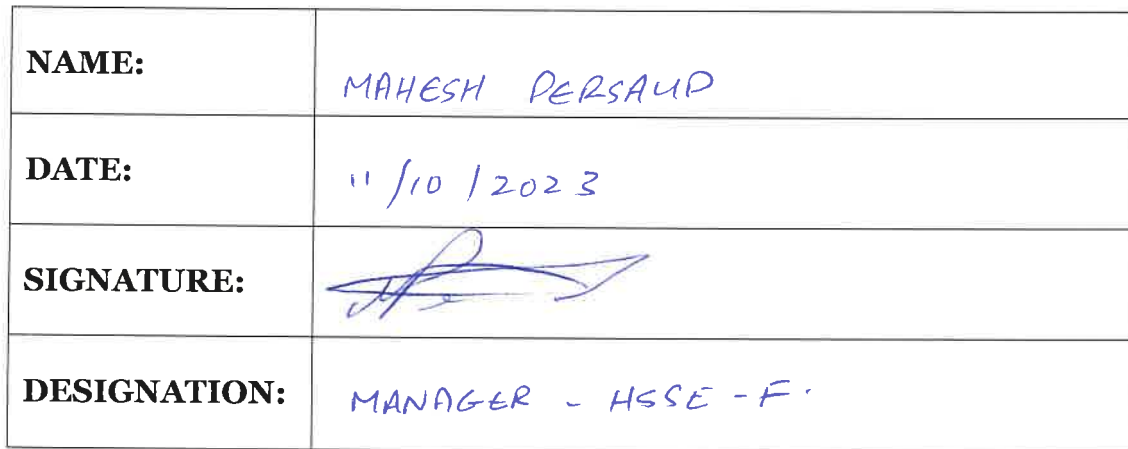 NAME: MAHESH PERSAUD
DATE: 11/10/2023
SIGNATURE:
DESIGNATION: MANAGER - HSSE - F.